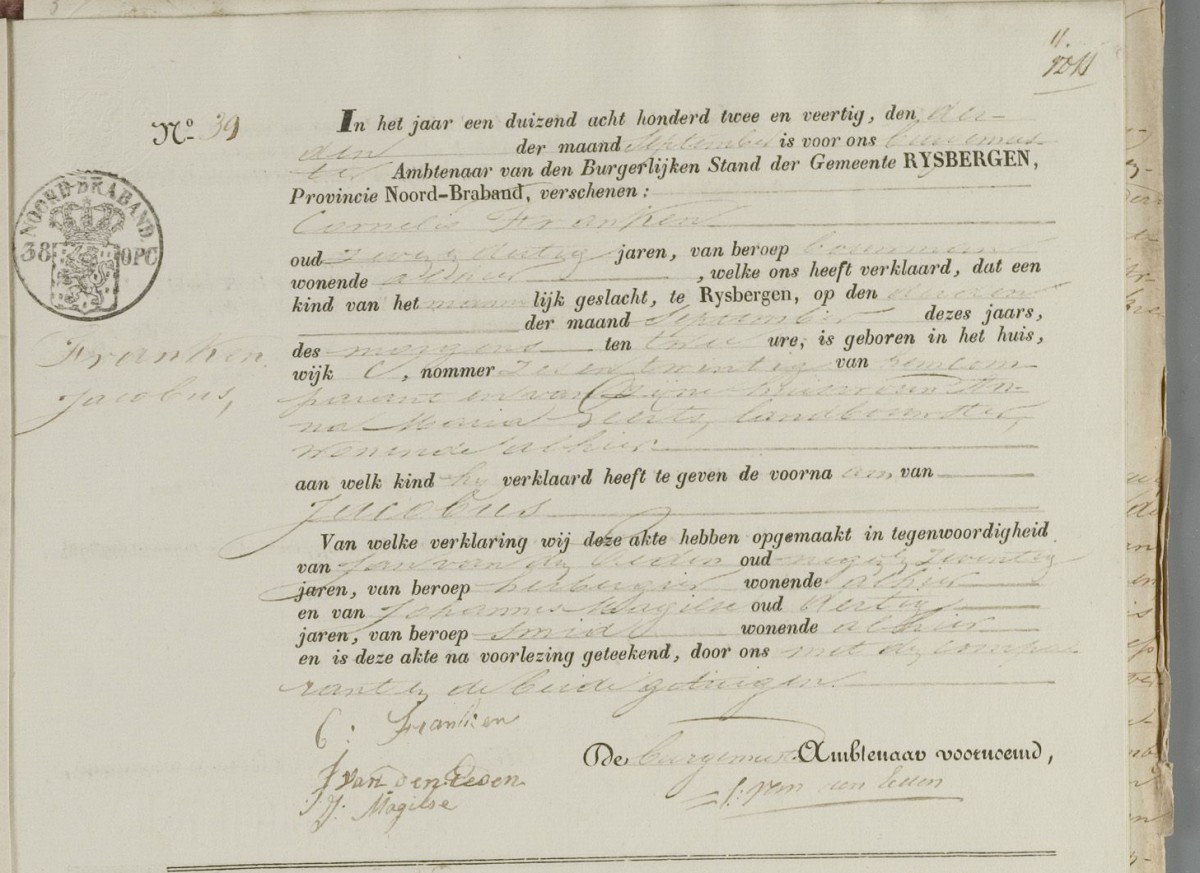 11.
No. 39
In het jaar een duizend acht honderd twee en veertig, den der-
den der maand September is voor ons burgemees-
ter Ambtenaar van den Burgerlijken Stand der Gemeente RYSBERGEN,
Provincie Noord-Braband, verschenen:
Cornelis Franken
oud twee & dertig jaren, van beroep bouwman
wonende alhier , welke ons heeft verklaard, dat een
kind van het mannelijk geslacht, te Rysbergen, op den
der maand September dezes jaars,
des morgens ten twee ure, is geboren in het huis,
wijk C, nommer zes en twintig van hem com-
parant en van zijne huisvrouw An-
na Maria Geerts, landbouwster,
wonende alhier
aan welk kind hij verklaard heeft te geven de voorna am van
Jacobus
Van welke verklaring wij deze akte hebben opgemaakt in tegenwoordigheid
van Jan van den Eeden oud negen & twintig
jaren, van beroep herbergier wonende alhier
en van Johannes Magilse oud dertig
jaren, van beroep smid wonende alhier
en is deze akte na voorlezing geteekend, door ons met den compa
rant en de beide getuigen.
NOORD-BRABAND.
38 OPC
Franken
Jacobus,
C: Franken
De burgemeester Ambtenaar voornoemd,
J van den Eeden
J. Magilse
J: van den Eeden